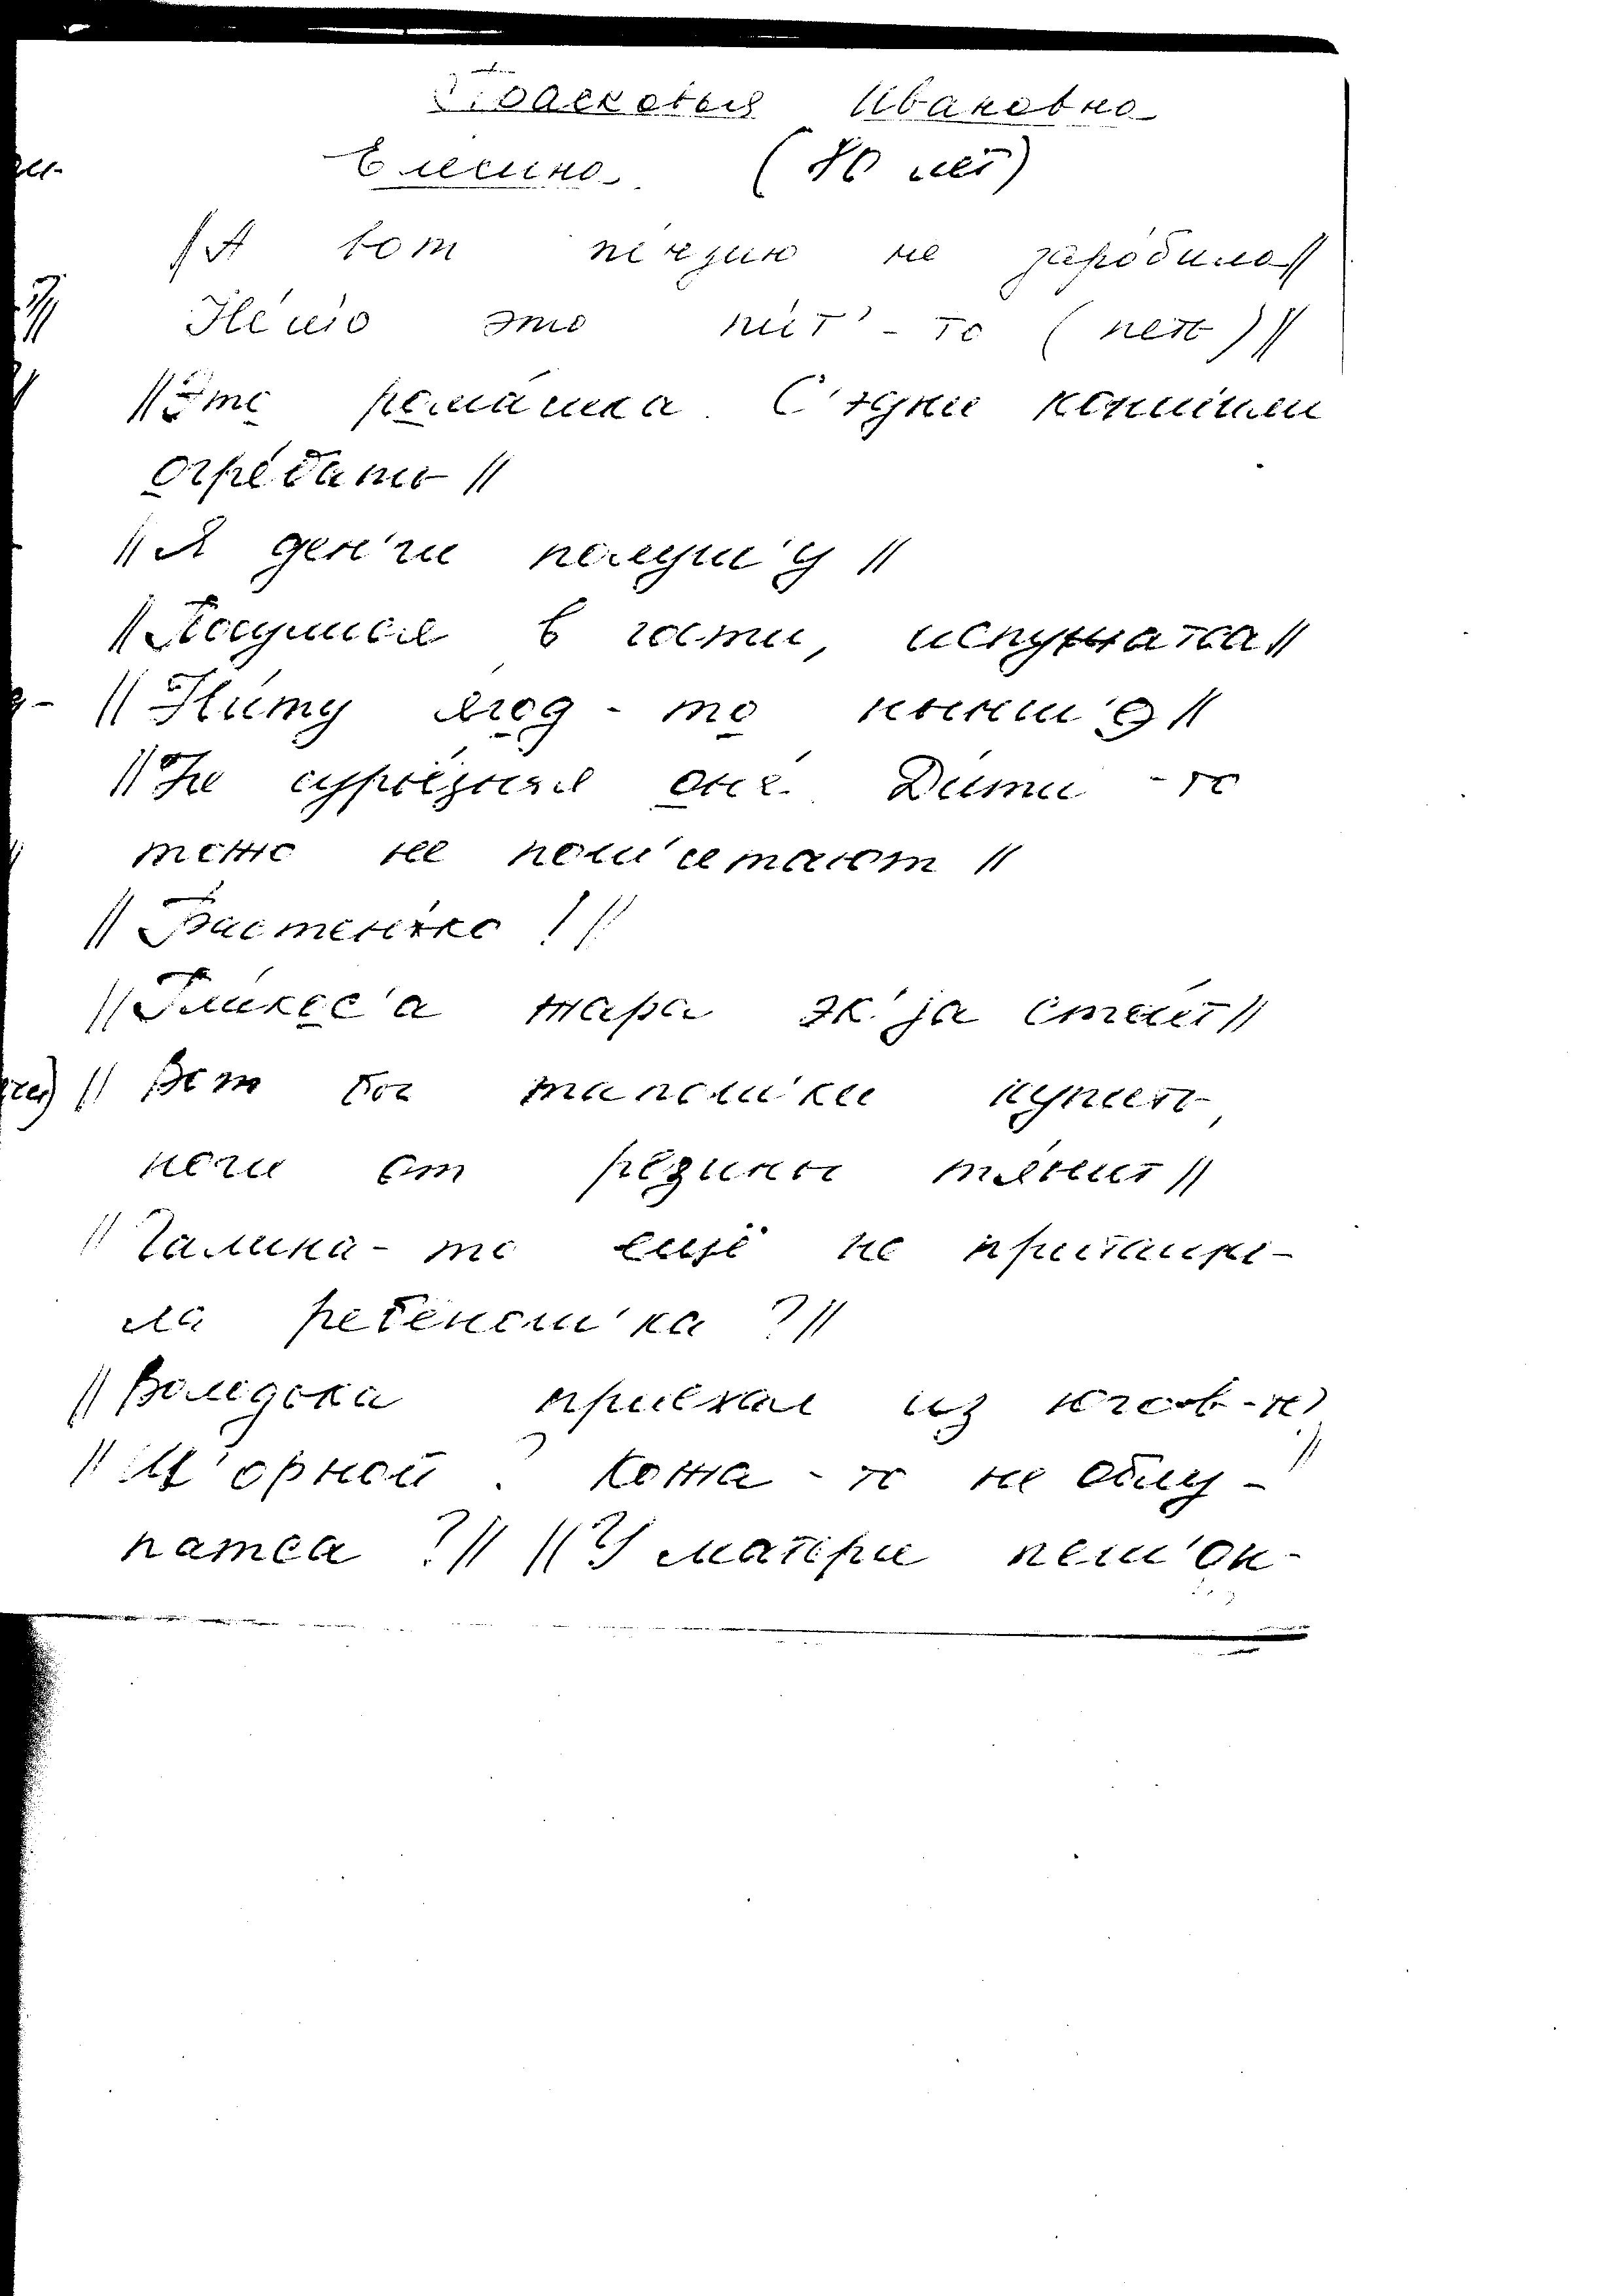 Прасковья Ивановна
Елесина (80 лет)
// А вот пе́нзию не заро́била //
Не́што это пи́т'-то (петь) //
// Это рома́шка. С'эдни кончи́ли
огре́бать //
// Я ден'ги полуш'у //
// Посулисе в гости, испужатса //
// Ни́ту я́год-то нынш'э //
// Не сурьёзныя оне́. Ди́ти-то
тожо не пош'итают //
// Бастенько! //
// Гли́кос'а жара эк'jа стои́т //
// Вот бы тапош'ки купить,
ноги от рези́ны тя́нит //
// Галина-то ещё не притащи-
ла ребёнош'ка? //
// Володька приехал из югов-то //
// Ц'орной? Кожа-то не облу-
патса? // // У матери пеш'он-